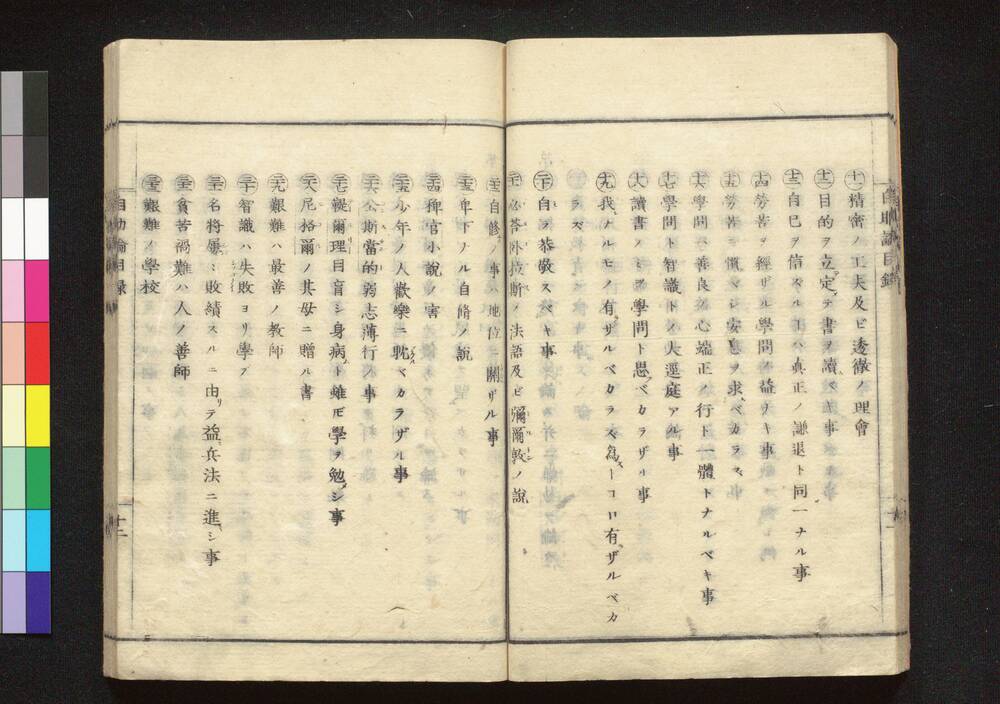 自助論目録
十一 精密ノ工夫及ビ透徹ノ理會
十二 目的ヲ立定テ書ヲ讀ベキ事
十三 自己ヲ信ズルヿハ真正ノ謙退ト同一ナル事
十四 勞苦ヲ經ザル學問ハ益ナキ事
十五 勞苦ヲ慣マシ安息ヲ求ベカラズ
十六 學問ハ善良ノ心端正ノ行ト一體トナルベキ事
十七 學問ト智識トノ大逕庭アル事
十八 讀書ノミヲ學問ト思ベカラザル事
十九 我ナルモノ有ザルベカラズ為トコロ有ザルベカ
ラズ
二十 自ヲ恭敬スベキ事
必答臥拉斯ノ法語及ビ彌爾敦ノ說
自修ノ事ハ地位ニ關ザル事
卑下ナル自脩ノ說
稗官小說ノ害
少年ノ人歡樂ニ耽ベカラザル事
公斯當的弱志薄行ノ事
禔爾理目盲シ身病ト雖𪜈學ヲ勉メシ事
尼格爾ノ其母ニ贈ル書
艱難ハ最善ノ教師
三十 智識ハ失敗ヨリ學ブ
名將屢々敗績スルニ由テ益兵法ニ進シ事
貧苦禍難ハ人ノ善師
艱難ノ學校
自助論目録
十二